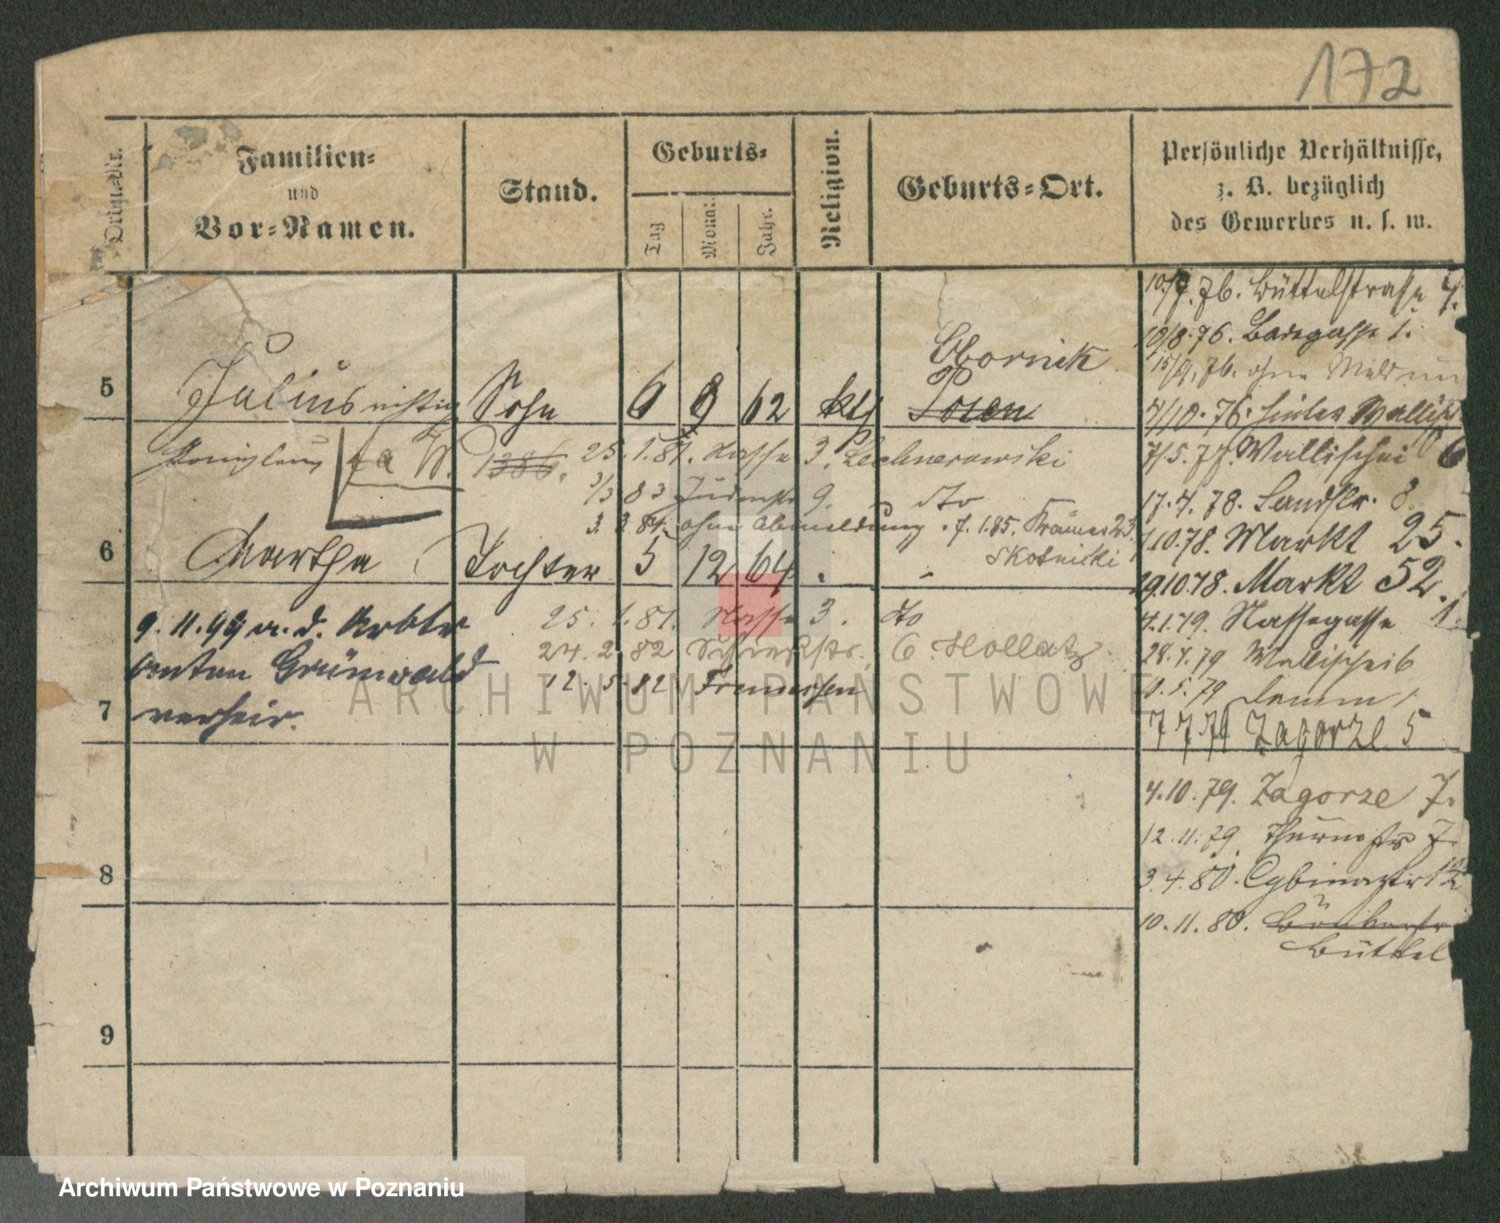 172
Ordn.-Nr.
Familien-
und
Vor-Namen.
Stand.
Geburts-
Tag
Monat.
Jahr.
Religion.
Geburts-Ort.
Persönliche Verhältnisse,
z. B. bezüglich
des Gewerbes u. s. w.
10/7. 76. Büttelstrasse
10/8. 76. Badegasse 1.
15/9. 76. ohne Meldun
7/10. 76. hinter Wallisch
7/5. 77. Wallischei 6
17. 4. 78. Landstr. 8.
1.10.78. Markt 25.
19.10.78. Markt 52.
4.1.79. Nassegasse 1.
28.4.79 Wallischei 6
1.5.79 Damm 1
7 7 79 Zagorze 5
4.10.79. Zagorze 7.
12.11.79.
3.4.80.
10.11.80.
Büttel
5 Julius Sohn 6 9 62 kth Obornick
Posen
1386.
25.1.81. Nasse 3. Lechnerowski
3/3 83 Judenstr 9. dto
3. 3. 84. ohne Abmeldung . 7. 1.85. Krämer 23.
Skotnicki
6 Martha Tochter 5 12 64
25. 1. 81. Nasse 3. dto
24. 2. 82 Schiekstr. 6. Hollatz
12. 5. 82
9. 11. 99 a. d. Arbtr
Anton Grünwald
verheir.
7
8
9
ARCHIWUM PAŃSTWOWE
W POZNANIU
Archiwum Państwowe w Poznaniu